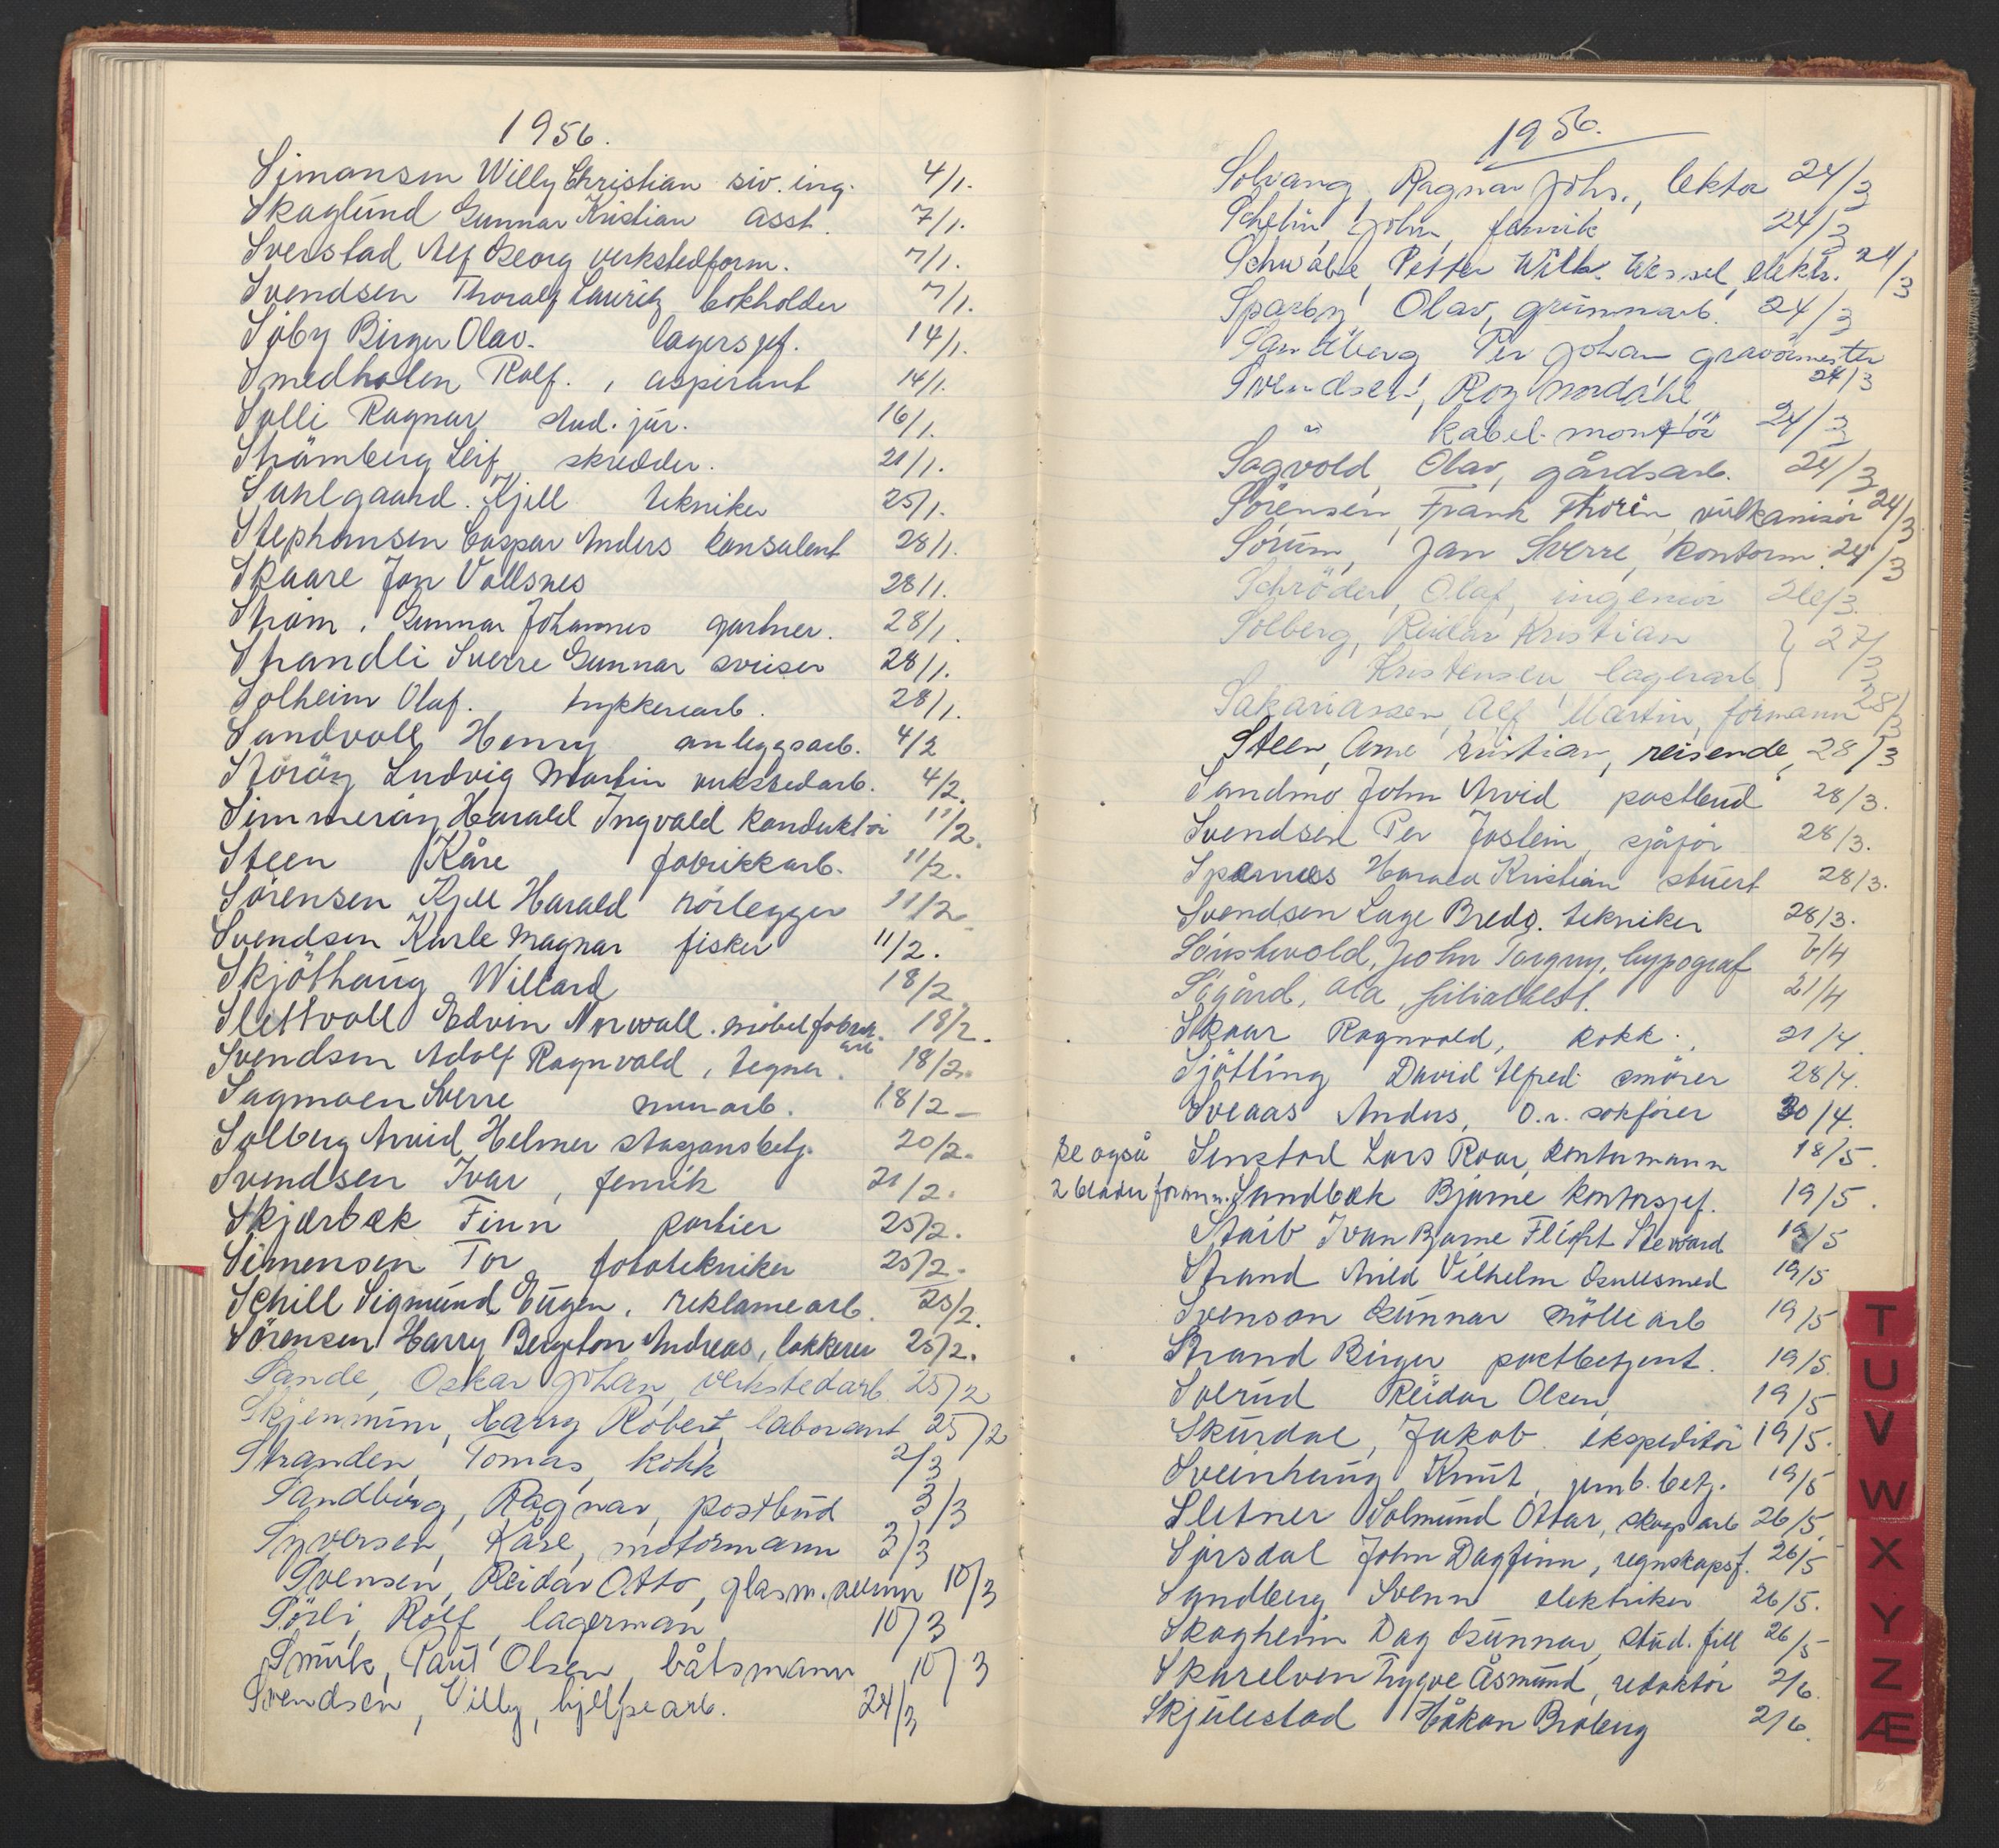 1956.
Simonsen Willy Christian siv. ing. 4/1.
Skoglund Gunnar Kristian asst. 7/1.
Sverstad Alf Georg verkstedform. 7/1.
Svendsen Thoralf Lauritz bokholder 7/1.
Söby Birger Olav. lagersjef. 14/1.
Smedholen Rolf., aspirant 14/1.
Solli Ragnar stud. jur. 16/1.
Strömberg Leif skredder. 21/1.
Suhlgaard. Kjell tekniker 25/1.
Stephansen Caspar Anders konsulent 28/1.
Skaare Jon Vollsnes 28/1.
Ström, Gunnar Johannes gartner. 28/1.
Strandli Sverre Gunnar sveiser 28/1.
Solheim Olaf. trykkeriarb. 28/1.
Sandvoll Henry anleggsarb. 4/2
Störöy Ludvig Martin verkstedarb. 4/2.
Simmeröy Harald Ingvald konduktör 11/2.
Steen Kåre fabrikkarb. 11/2.
Sörensen Kjell Harald rörlegger 11/2
Svendsen Karle Magnar fisker 11/2.
Skjöthaug Willard 18/2
Slettvoll Edvin Norwall. möbelfabrik. arb 18/2.
Svendsen Adolf Ragnvald, tegner. 18/2.
Sagmoen Sverre murarb. 18/2
Solberg Arvid Helmer stasjonsbetj. 20/2.
Svendsen Ivar, fenrik 21/2.
Skjærbæk Finn portier 25/2.
Simensen Tor fototekniker 25/2.
Schill Sigmund Eugen, reklamearb. 25/2.
Sörensen Harry Bergton Andreas, lakkerer 25/2.
Sande, Oskar Johan, verkstedarb. 25/2
Skjennum, Harry Robert, laborant 25/2
Stranden, Tomas, kokk 2/3
Sandberg, Ragnar, postbud 3/3
Syversen, Kåre, motormann 3/3
Svensen, Reidar Otto, glasm. 10/3
Sörli, Rolf, lagerman 10/3
Smuk, Paul Olsen, båtsmann 10/3
Svendsen, Villy, hjelpearb. 24/3
1956.
Solvang, Ragnar Johs., lektor 24/3
Schelin, John, fenrik 24/3
Schwabe, Petter Wilh. Wessel, elektr. 24/3
Sparby, Olav, grunnarb. 24/3
Sandberg Per Johan gravörmester 24/3
Svendsen, Roy Nordahl
" kabel-montör 24/3
Sagvold, Olav, gårdsarb. 24/3
Sörensen, Frank Thorin, vulkanisör 24/3
Sörum, Jan Sverre, kontorm. 24/3
Schröder, Olaf, ingeniör 26/3.
Solberg, Reidar Kristian } 27/3
Kristensen, lagerarb
Sakariassen, Alf Martin, formann 28/3
Steen, Arne Kristian, reisende, 28/3
Sandmo John Arvid postbud 28/3.
Svendsen Per Jostein, sjåför 28/3.
Spernes Harald Kristian stuert 28/3.
Svendsen Lage Bredo. tekniker 28/3.
John Torgny, typograf 6/4
Sögård, Ola, filialbest. 21/4
Skaar Ragnvald, kokk. 21/4.
Sjötting David Alfred smörer 28/4.
Sveaas Anders, o.r. sakförer 30/4.
se også Sinstad Lars Roar, kontormann 18/5.
2 blader foran. Sandbæk Bjarne kontorsjef. 19/5.
Staib Ivan Bjarne Flight Steward 19/5
Strand Arild Vilhelm Gullsmed 19/5
Svenson Gunnar möllearb 19/5
Strand Birger postbetjent. 19/5.
Solrud Reidar Olsen, 19/5
Skurdal, Jakob ekspeditör 19/5.
Sveinhaug Knut, jernb. betj. 19/5
Sletner Solmund Ottar, skogsarb 26/5.
Sörsdal John Dagfinn, regnskapsf. 26/5
Sandberg Svenn elektriker 26/5.
Skogheim Dag Gunnar, stud. fill 26/5
Skarelven Trygve Åsmund, redaktör 2/6.
Skjulestad Håkon Broberg 2/6.
T
U
V
W
X
Y
Z
Æ